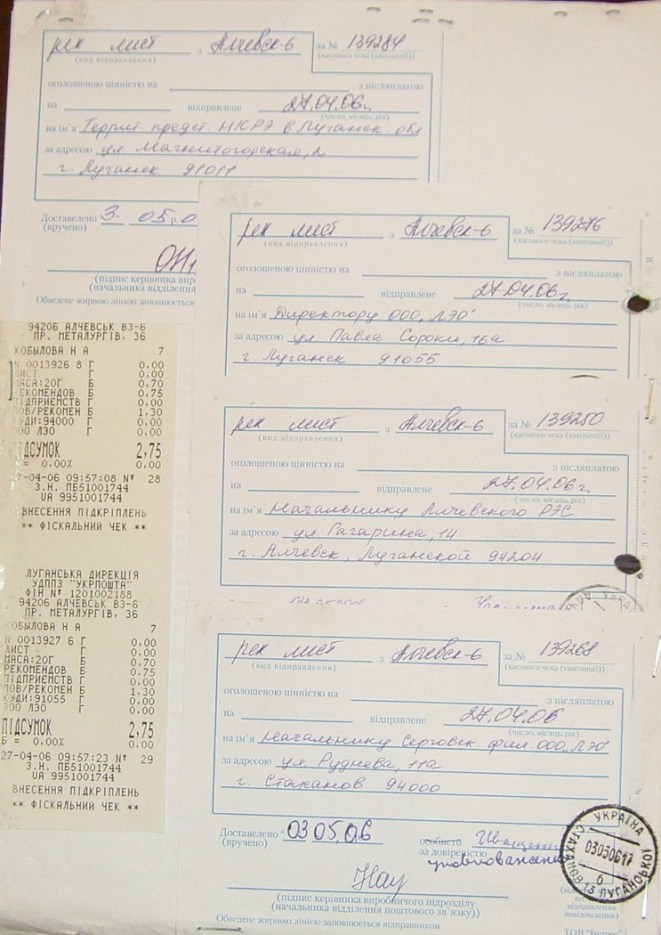 рек лист з Алчевск-6 за № 139284
(вид відправлення) (касового чека (квитанції))
оголошеною цінністю на з післяплатою
на відправлене 27.04.06г.
(число, місяць, рік)
на ім'я Террит. предст. НКРЭ в Луганск. обл.
за адресою ул Магнитогорская, 2
г. Луганск 91011
Доставлено 3. 05.0
(вручено)
(підпис керівника вир
(начальника відділення
Обведене жирною лінією заповнюється
рек лист з Алчевск-6 за № 139276
(вид відправлення) (касового чека (квитанції))
оголошеною цінністю на з післяплатою
на відправлене 27.04.06г.
(число, місяць, рік)
на ім'я Директору ООО "ЛЭО"
за адресою ул Павла Сороки, 16а
г. Луганск 91055
рек лист з Алчевск-6 за № 139250
(вид відправлення) (касового чека (квитанції))
оголошеною цінністю на з післяплатою
на відправлене 27.04.06г.
(число, місяць, рік)
на ім'я Начальнику Алчевского РЭС
за адресою ул Гагарина, 14
г. Алчевск, Луганской 94204
рек лист з Алчевск-6 за № 139268
(вид відправлення) (касового чека (квитанції))
оголошеною цінністю на з післяплатою
на відправлене 27.04.06
(число, місяць, рік)
на ім'я Начальнику Серговск. фил. ООО "ЛЭО"
за адресою ул Руднева, 11а
г. Стаханов 94000
Доставлено 03 05.06 особисто
(вручено) за довіреністю
(підпис керівника виробничого підрозділу
(начальника відділення поштового зв'язку))
Обведене жирною лінією заповнюється відправником
УКРАЇНА
030506 17
б
СТАХАНОВ 13 ЛУГАНСЬКОЇ
94206 АЛЧЕВСЬК ВЗ-6
ПР. МЕТАЛУРГІВ, 36
КОБИЛОВА Н А 7
N 0013926 8 Г 0.00
ЛИСТ Г 0.00
МАСА:20Г Б 0.70
РЕКОМЕНДОВ Б 0.75
ПІДПРИЄМСТВ Г 0.00
ПОВ/РЕКОМЕН Б 1.30
КУДИ:94000 Г 0.00
ООО ЛЭО Г 0.00
ПІДСУМОК 2,75
Б = 0.00% 0.00
27-04-06 09:57:08 № 28
З.Н. ПБ51001744
UA 9951001744
ВНЕСЕННЯ ПІДКРІПЛЕНЬ
** ФІСКАЛЬНИЙ ЧЕК **
ЛУГАНСЬКА ДИРЕКЦІЯ
УДППЗ "УКРПОШТА"
ФІН № 1201002188
94206 АЛЧЕВСЬК ВЗ-6
ПР. МЕТАЛУРГІВ, 36
КОБИЛОВА Н А 7
N 0013927 6 Г 0.00
ЛИСТ Г 0.00
МАСА:20Г Б 0.70
РЕКОМЕНДОВ Б 0.75
ПІДПРИЄМСТВ Г 0.00
ПОВ/РЕКОМЕН Б 1.30
КУДИ:91055 Г 0.00
ООО ЛЭО Г 0.00
ПІДСУМОК 2,75
Б = 0.00% 0.00
27-04-06 09:57:23 № 29
З.Н. ПБ51001744
UA 9951001744
ВНЕСЕННЯ ПІДКРІПЛЕНЬ
** ФІСКАЛЬНИЙ ЧЕК **